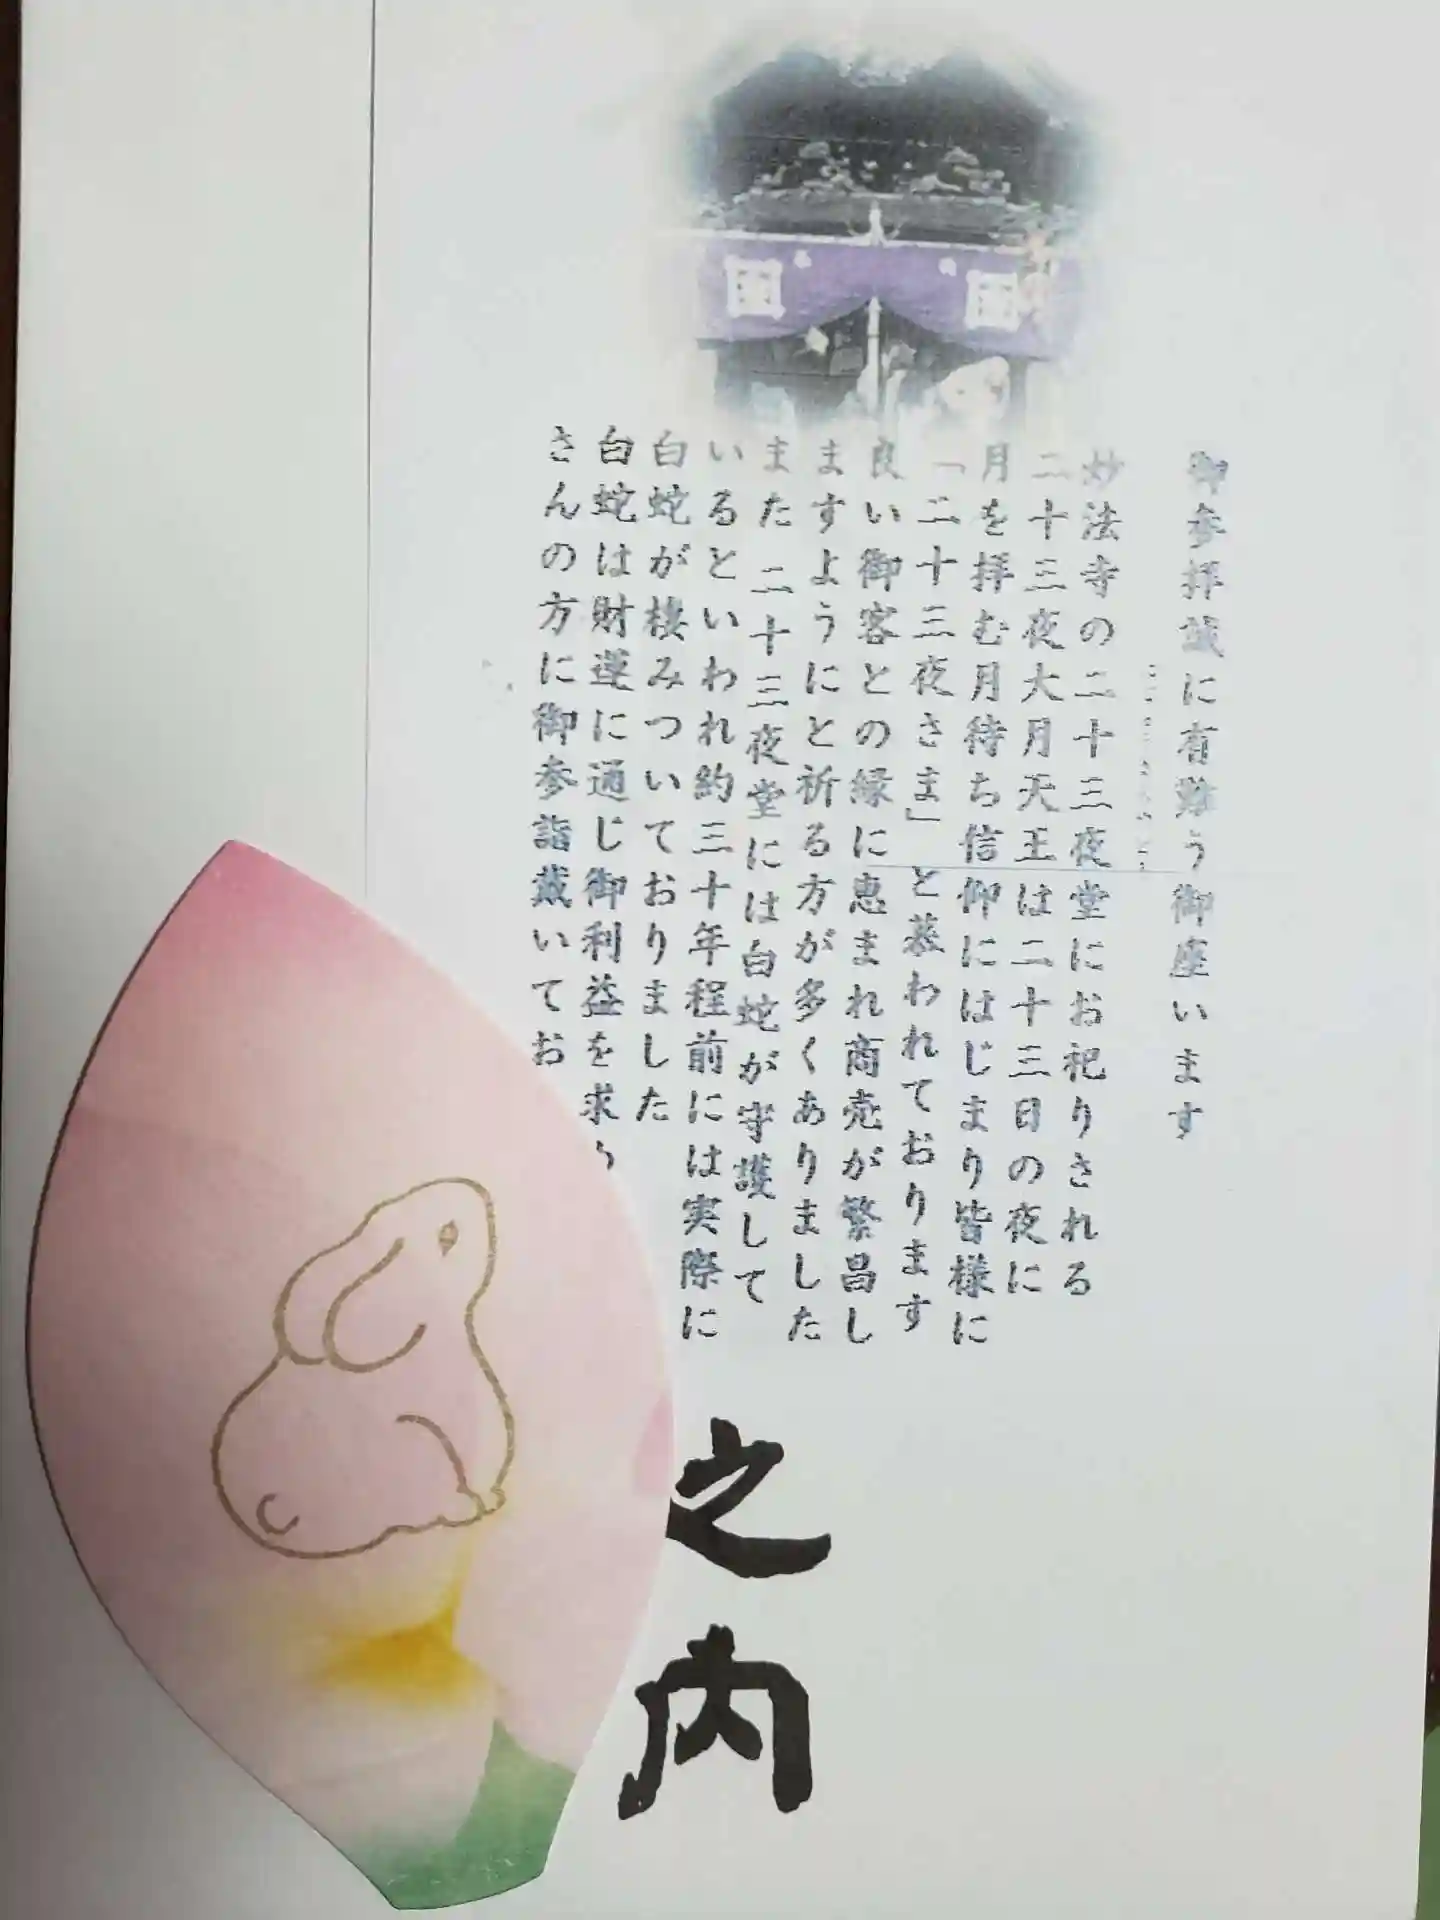 御参拝誠に有難う御座います
妙法寺の二十三夜堂にお祀りされる
二十三夜大月天王は二十三日の夜に
月を拝む月待ち信仰にはじまり皆様に
「二十三夜さま」と慕われております
良い御客との縁に恵まれ商売が繁昌し
ますようにと祈る方が多くありました
また 二十三夜堂には白蛇が守護して
いるといわれ約三十年程前には実際に
白蛇が棲みついておりました
白蛇は財運に通じ御利益を求
さんの方に御参詣戴いてお
之内